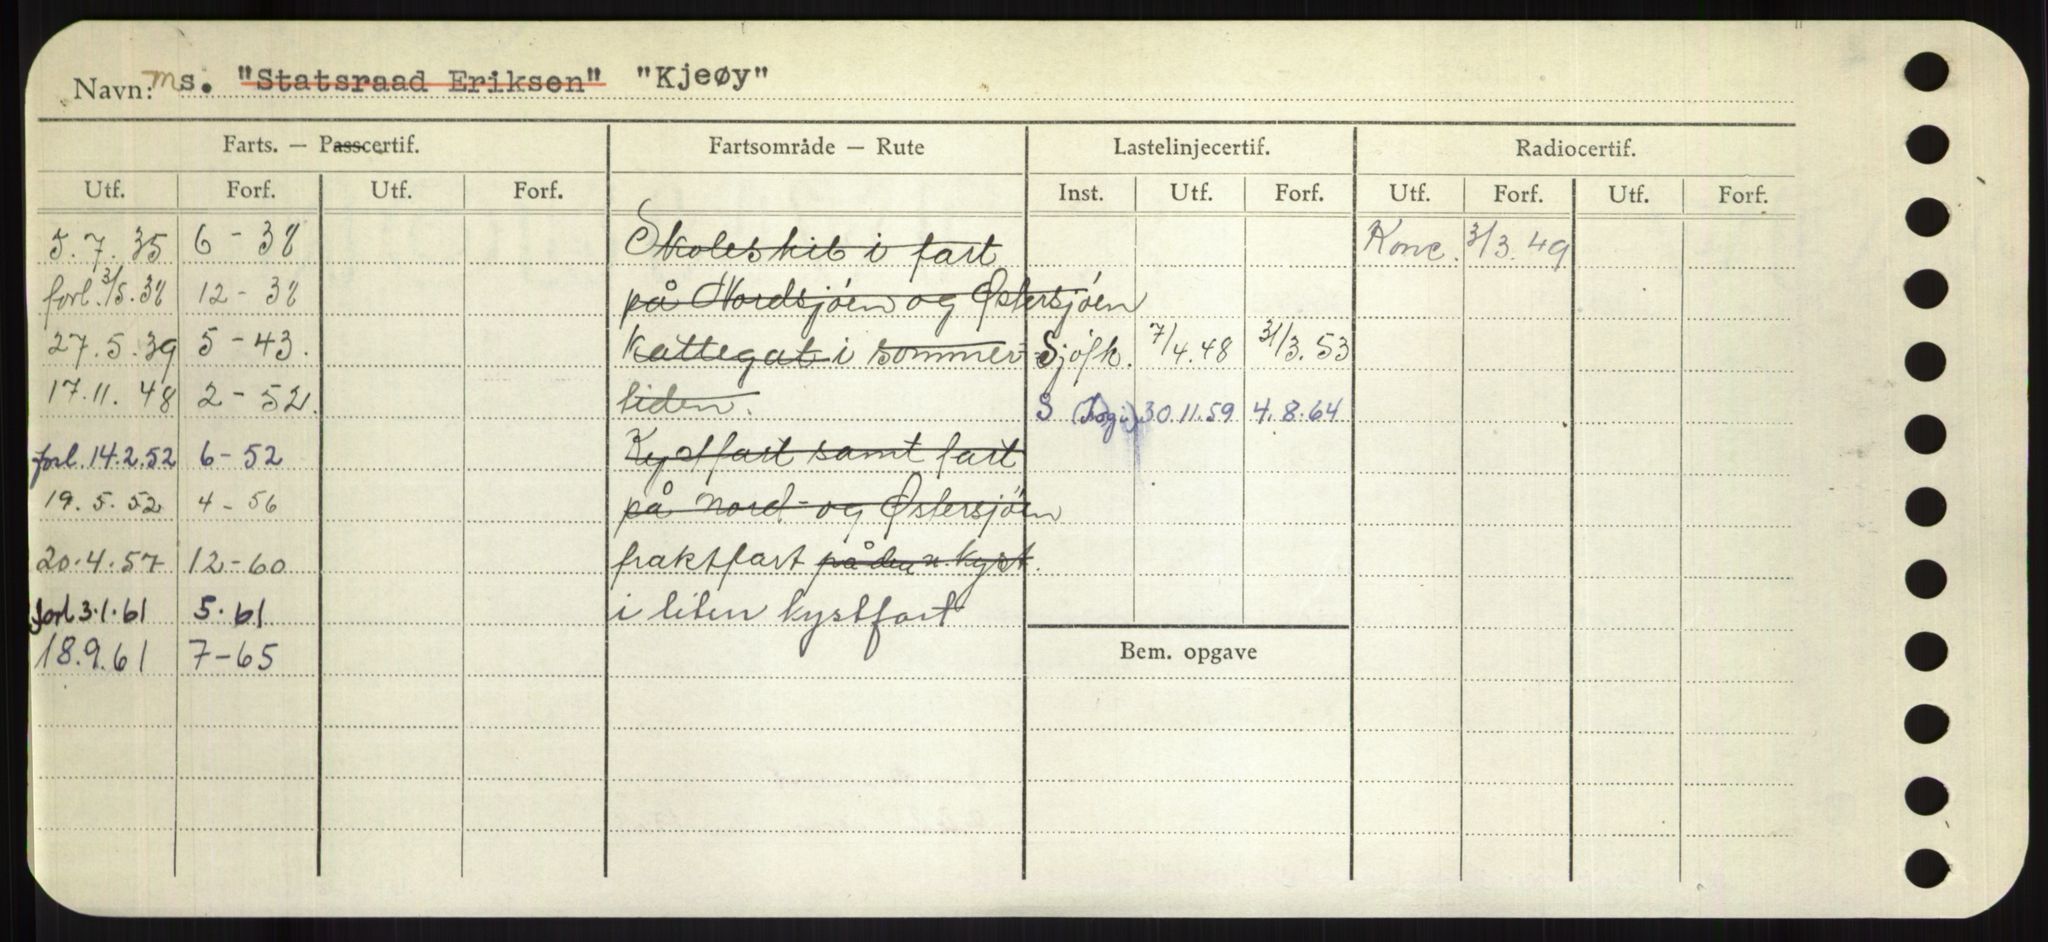 Navn: Ms. "Statsraad Eriksen" "Kjeøy"
Farts. — Passcertif. Fartsområde — Rute Lastelinjecertif. Radiocertif.
Utf. Forf. Utf. Forf. Inst. Utf. Forf. Utf. Forf. Utf. Forf.
5.7.35 6 - 38 Skoleskib i fart Konc. 3/3.49
forl. 3/5.38 12 - 38 på Nordsjøen og Østersjøen
27.5.39 5 - 43. Kattegat i sommer- Sjøfk. 7/4.48 31/3.53
17.11.48 2 - 52. tiden. S 30.11.59 4.8.64
forl. 14.2.52 6 - 52 Kystfart samt fart
19.5.52 4 - 56 på nord- og Østersjøen
20.4.57 12-60 fraktfart på den n. kyst.
forl 3.1.61 5.61 i liten kystfart
18.9.61 7-65
Bem. opgave